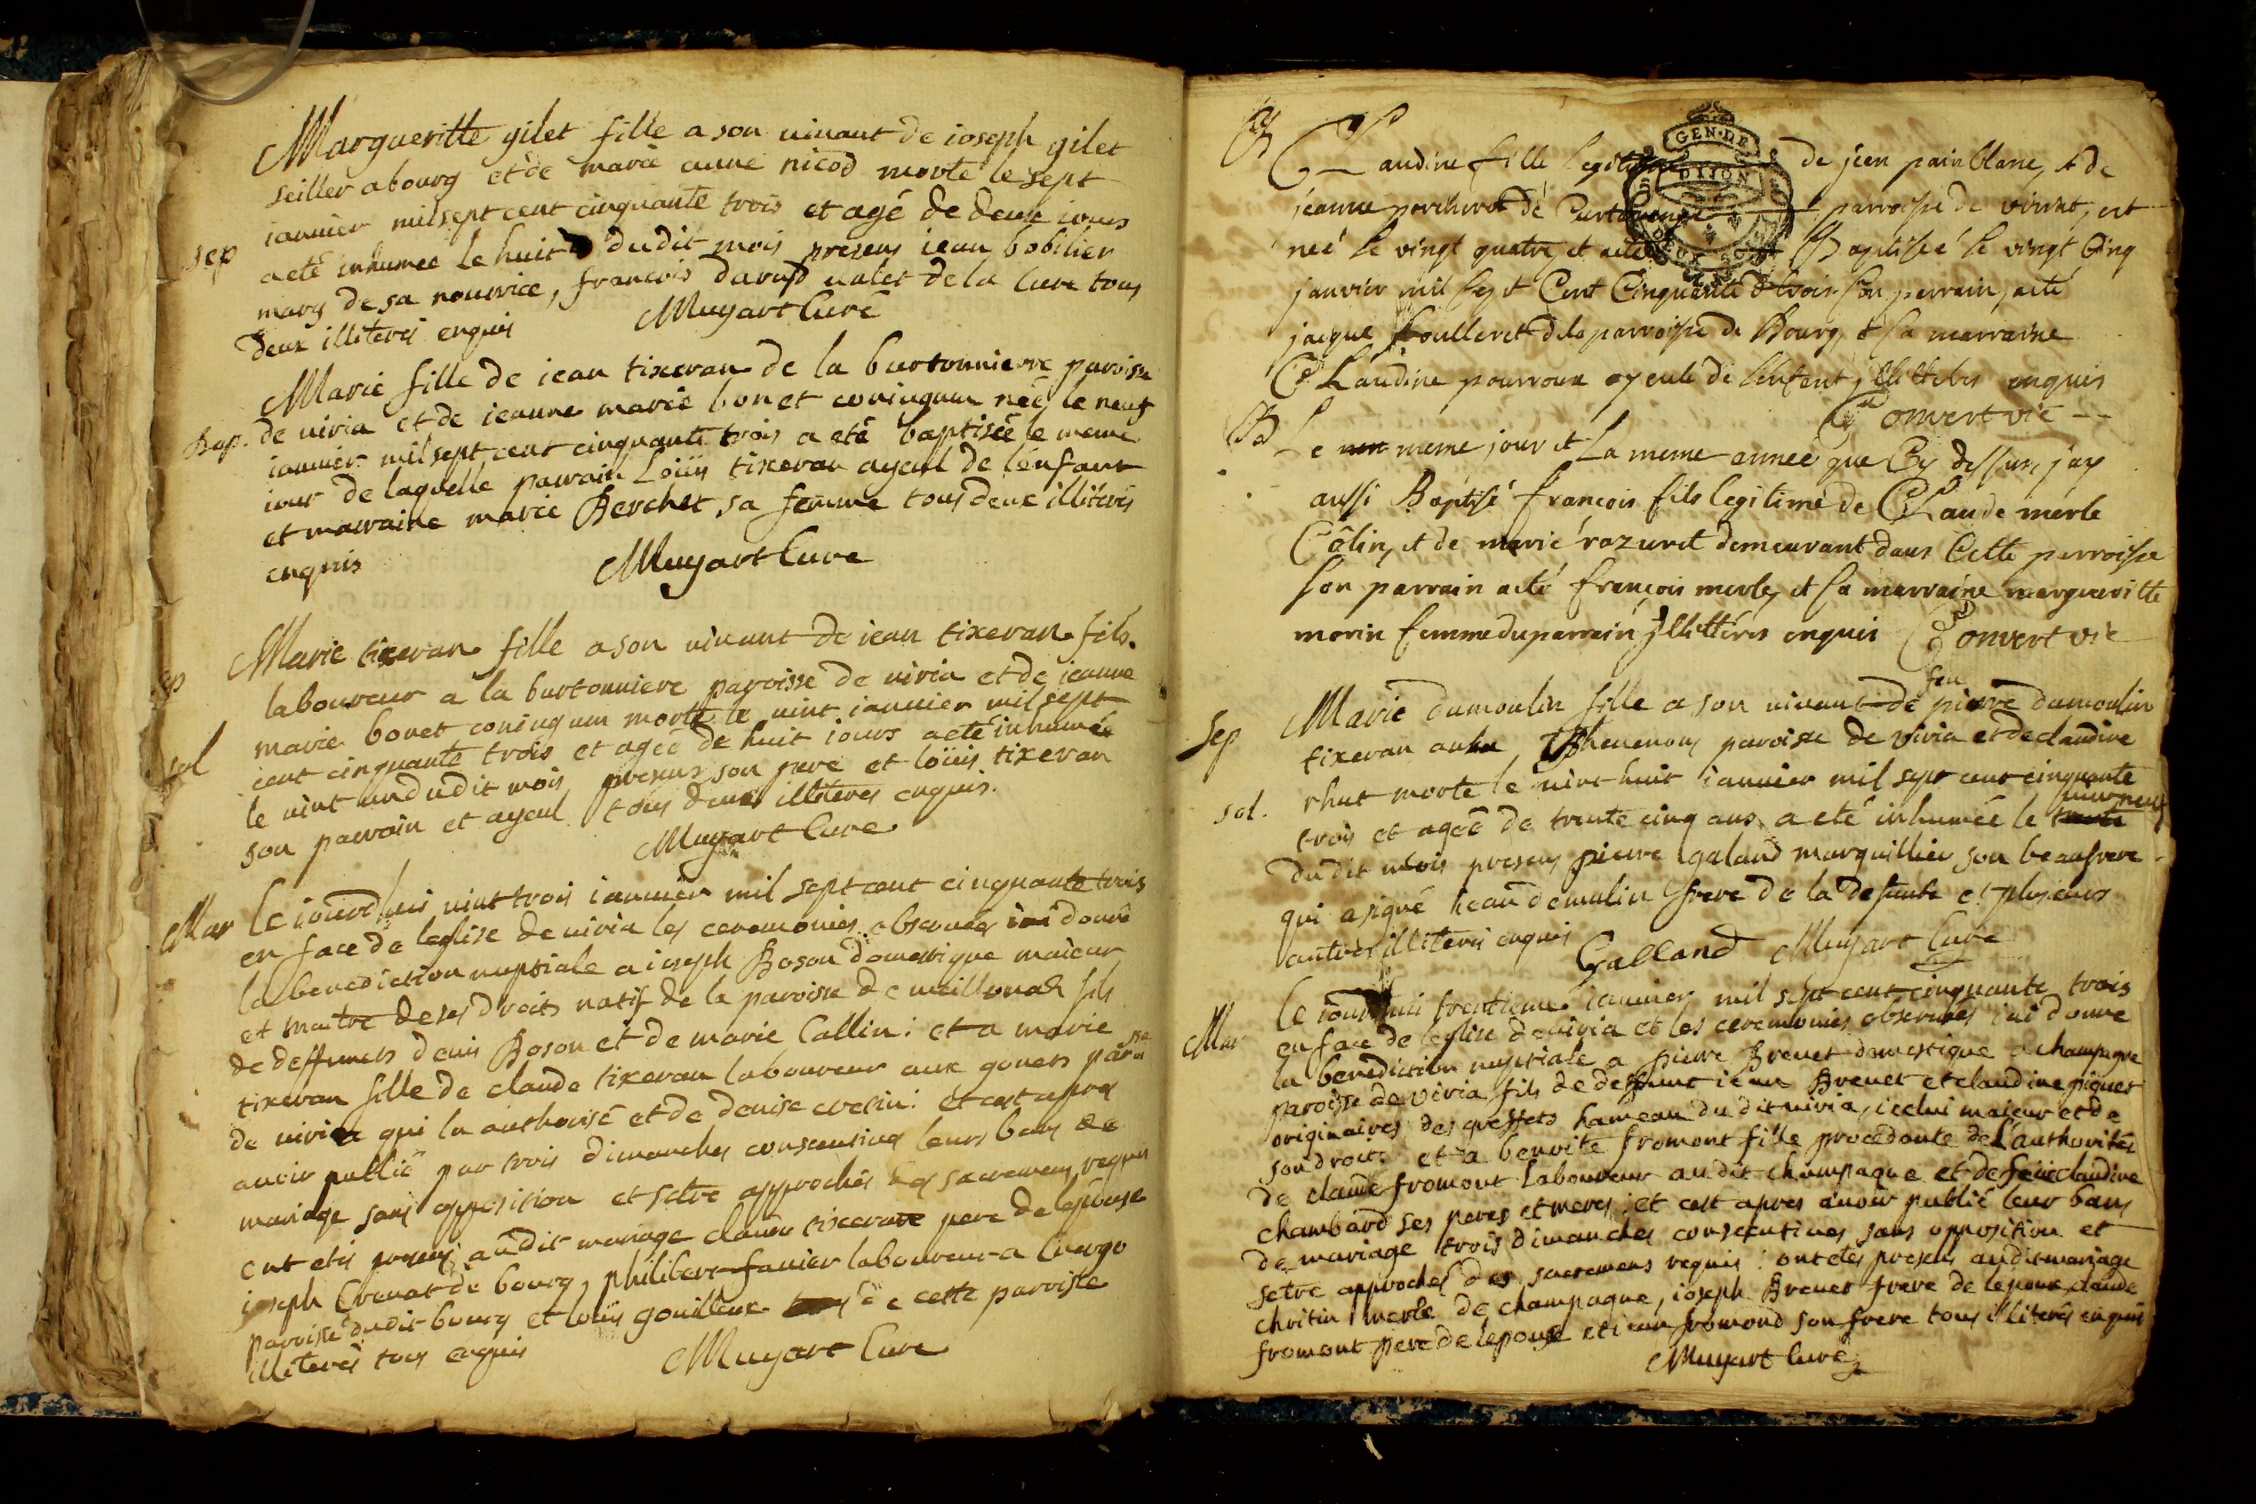 Margueritte gilet fille a son uiuant de ioseph gilet
seiller a bourg et de marie anne nicod morte le sept
ianuier mil sept cent cinquante trois et agé de deux iours
sep
a eté inhumee le huit dudit mois presens iean bobilier
mary de sa nourrice, francois darud ualet de la cure tous
deux illiterés enquis Muyart Curé
Marie fille de iean tixeran de la burtonnierre paroisse
Bap. de uiria et de ieanne marie bonet coniugum neé le neuf
ianuier mil sept cent cinquante trois a eté baptisée le meme
iour de laquelle parrain Loüis tixeran ayeul de lenfant
et marraine marie Berchet sa femme tous deux illiterés
enquis Muyart Cure
Marie tixeran fille a son uiuant de iean tixeran fils
sep
laboureur a la burtonniere paroisse de uiria et de ieanne
marie bonet coniugum morte le uint ianuier mil sept
sol
cent cinquante trois et agée de huit iours a eté inhumée
le uint un dudit mois presens son pere et loüis tixeran
son parrain et ayeul tous deux illiterés enquis.
Muyart Cure
Mar
le iourdhui uint trois ianuier mil sept cent cinquante trois
en face de leglise de uiria les ceremonies obseruées iai donné
la benediction nuptiale a ioseph Boson domestique maieur
et maitre de ses droits natif de la paroisse de meillonas fils
de deffunts denis Boson et de marie Collin: et a marie
tixeran fille de claude tixeran laboureur aux goners parsse
de uiria qui la authorisé et de denise uesin: et cest apres
auoir publié par trois dimanches consecutiues leurs bans de
mariage sans opposition et setre approchés des sacremens requis
ont etés presens audit mariage claude tixeran pere de lepouse
ioseph Creuat de bourg, philibert fauier laboureur a
paroisse dudit bourg et loüis gouilleux de cette paroisse
illiterés tous enquis Muyart Cure
B
Claudine fille legitime de jean pain blanc, & de
jeanne percheret de Curtaringe parroisse de viriat, est
neé le vingt quatre et a eté Baptisée le vingt Cinq
janvier mil sept Cent Cinquante & trois son parrain, a eté
jacque Boulleret de la parroisse de Bourg, & sa marraine
Claudine pourroux ayeule de l'enfant, illitterés enquis
Convert vic --
B
Le meme jour et La meme anneé que Cy dessus, j'ay
aussi Baptisé françois fils legitime de Claude merle
Colin, et de marie razuret demeurant dans Cette parroisse
son parrain a eté françois merle, et sa marraine margueritte
morin femme du parrain jllittérés enquis Convert vic
feu
Marie dumoulin fille a son uiuant de pierre dumoulin
Sep
tixeran au theuenon, paroisse de viria et de claudine
rhut morte le uint huit ianuier mil sept cent cinquante
sol.
uint neuf
trois et agée de trente cinq ans a eté inhumée le trente
dudit mois presens pierre galand marguillier son beaufrere
qui a signé iean demulin frere de la defunte et plusieurs
autres illiterés enquis Galland Muyart Cure
Mar
le iourdhui trentieme ianuier mil sept cent cinquante trois
en face de leglise de uiria et les ceremonies obseruées iai donné
la benediction nuptiale a pierre Breuet domestique a champagne
paroisse de viria fils de deffunt iean Breuet et claudine piquet
originaires des greffets hameau du dit uiria, icelui maieur et de
son droit: et a benoite fromont fille procedante de l'authorité
de claude fromont laboureur au dit champagne et de feüe claudine
chambard ses peres et meres; et cest apres auoir publié leur bans
de mariage trois dimanches consecutiues sans opposition et
setre approchés des sacremens requis: ont etés presens audit mariage
chritin merle de champagne, ioseph Breuet frere de lepoux, claude
fromont pere de lepouse et iean fromond son frere tous illiterés enquis
Muyart curé
GEN·DE
DIJON
DEUX SOLS